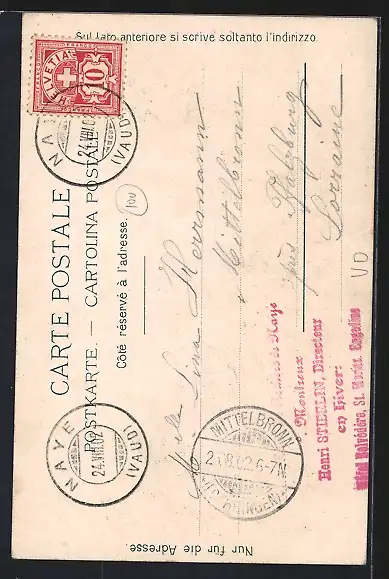 Sul lato anteriore si scrive soltanto l'indirizzo.
HELVETIA
FRANCO
10
NAYE
24.VIII.02
(VAUD)
CARTE POSTALE
POSTKARTE. — CARTOLINA POSTALE
Côté réservé à l'adresse.
100
Mlle Lina Herrmann
Mittelbronn
près Pfalzburg
Lorraine
UD
Montreux
Henri STIERLIN, Directeur
en Hiver:
Hôtel Belvédère, St. Moritz, Engadine
NAYE
24.VIII.02
(VAUD)
MITTELBRONN
25.08.02.6-7N.
(LOTHRINGEN)
Nur für die Adresse.